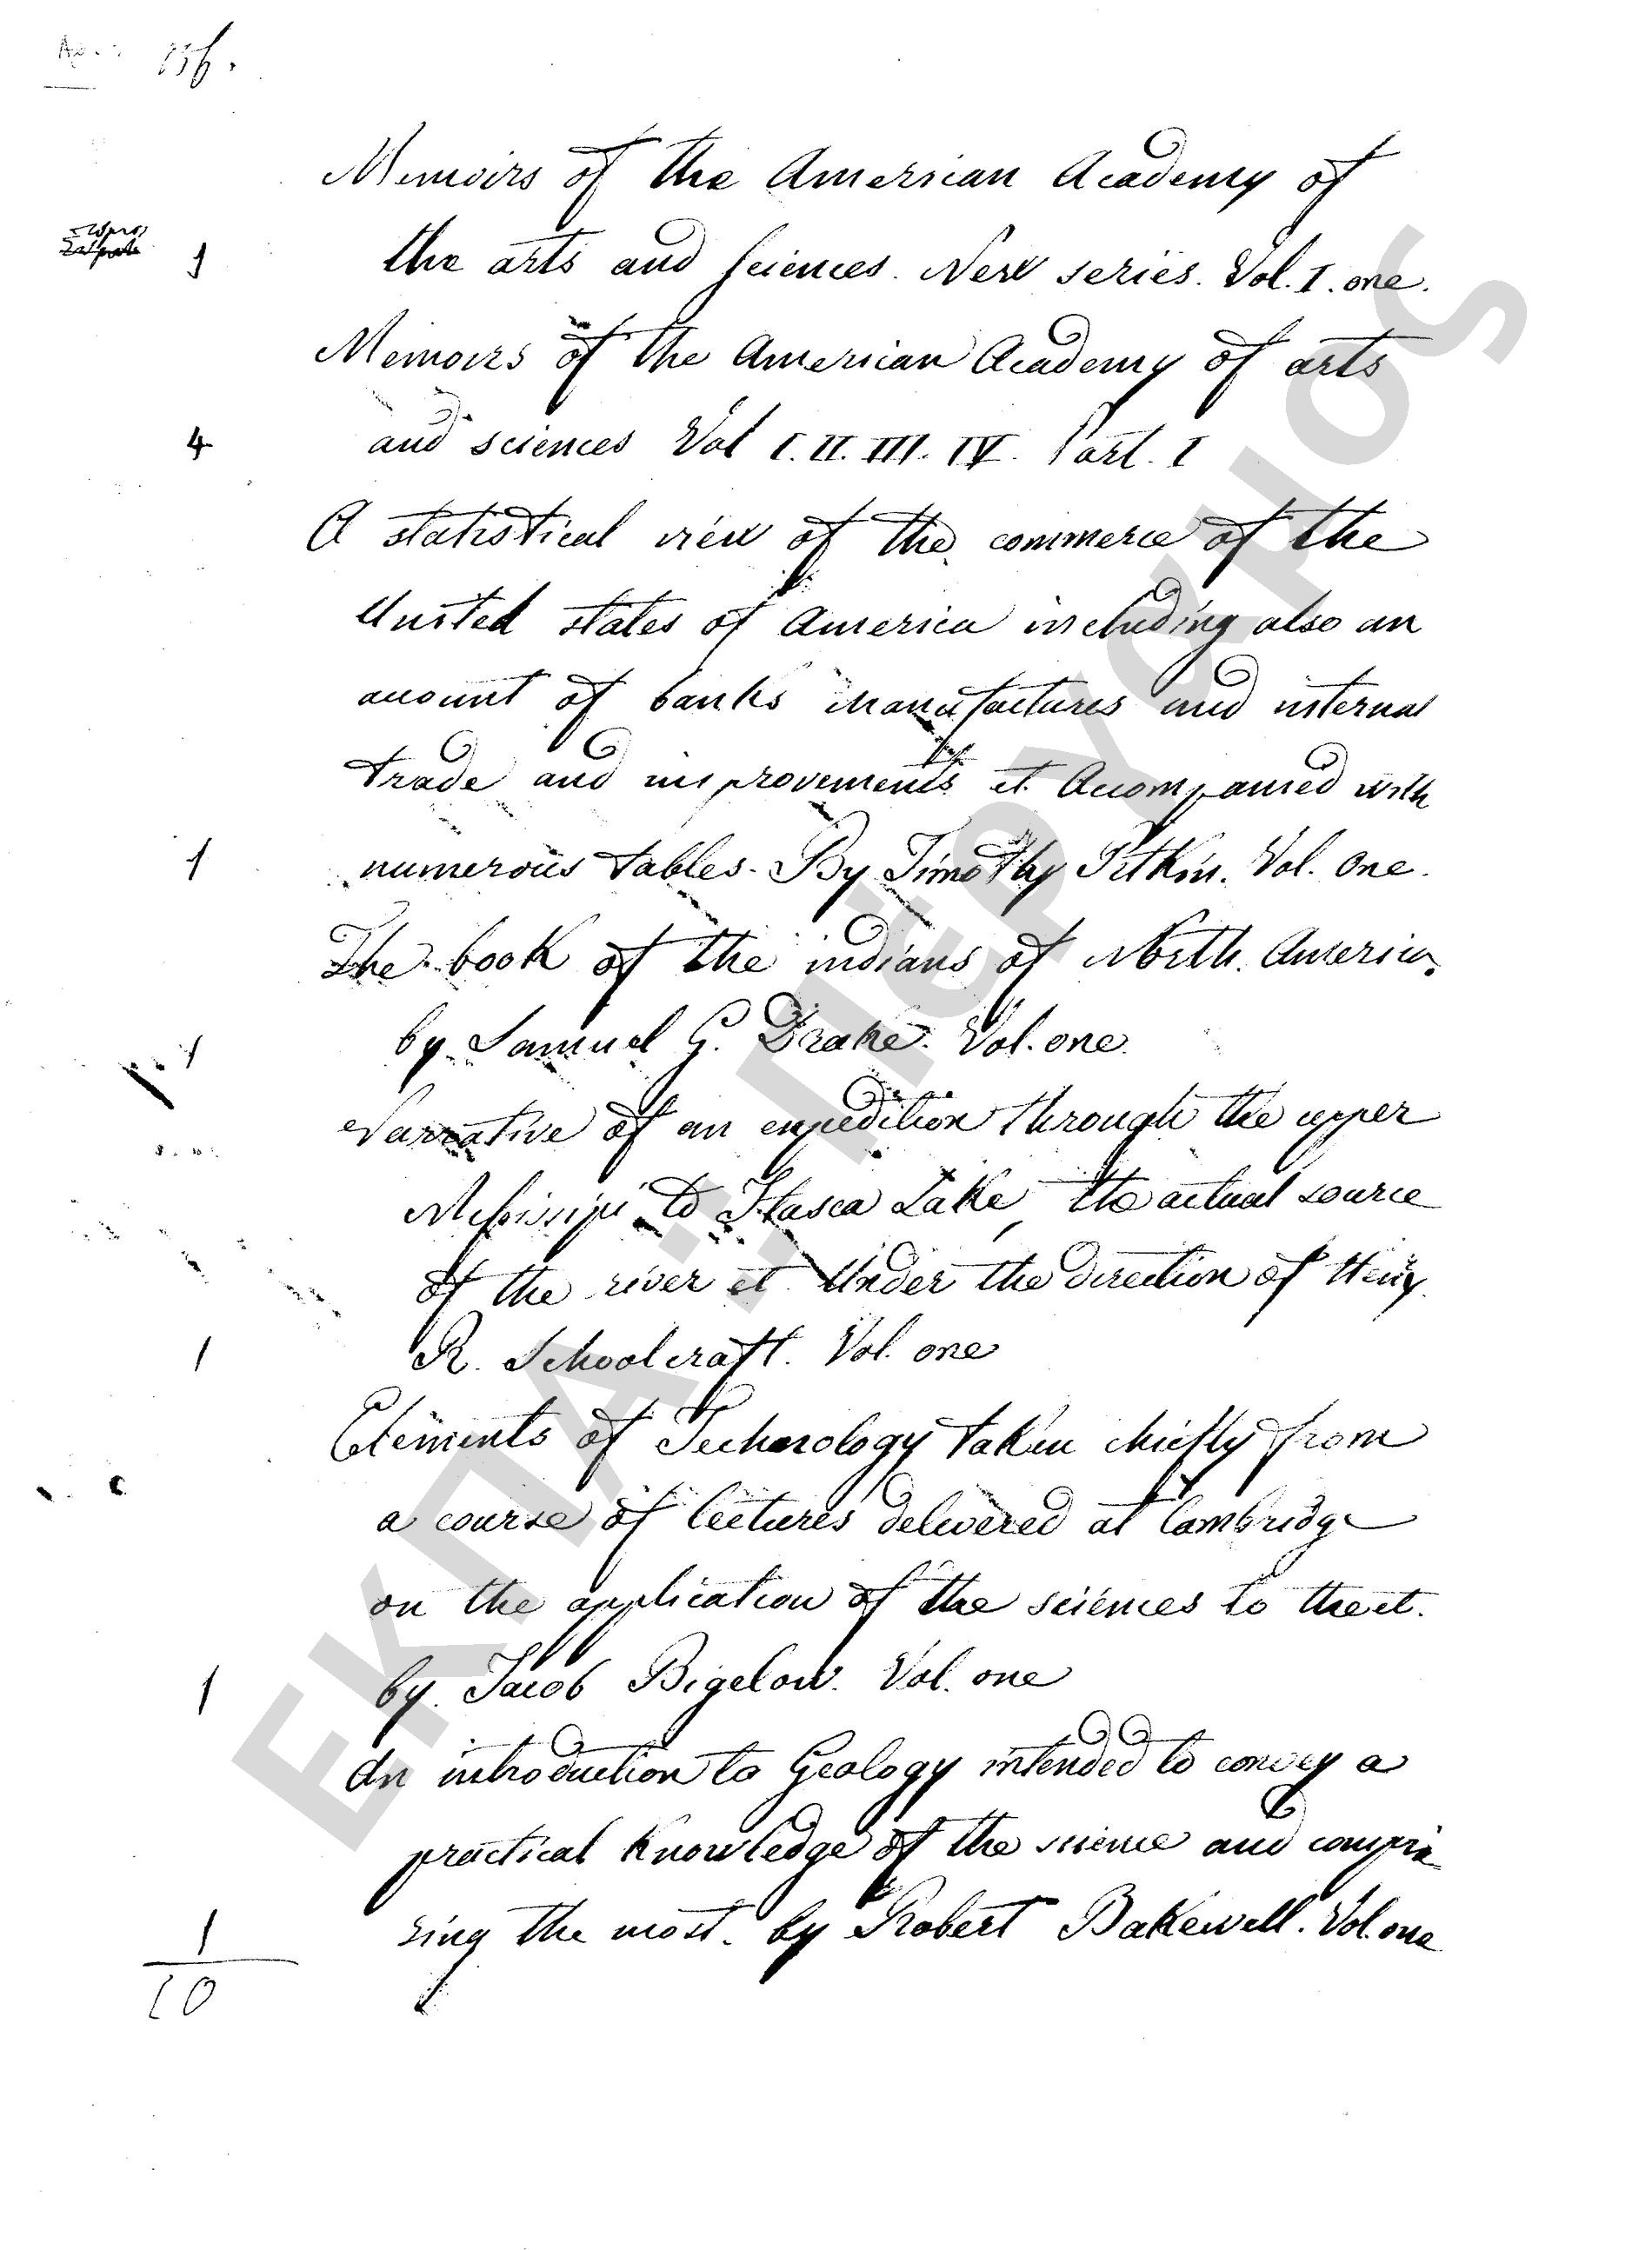 156.
Memoirs of the American Academy of
1 the arts and sciences. New series. Vol. I. one.
Memoirs of the American Academy of arts
4 and sciences Vol I. II. III. IV. Part. I
A statistical view of the commerce of the
United states of America including also an
account of banks manufactures and internal
trade and improvements et. Accompanied with
1 numerous tables. By Timothy Pitkin. Vol. One.
The book of the indians of North. America.
1 by Samuel G. Drake. Vol. one.
Narrative of an expedition through the upper
Missisipi to Itasca Lake, the actual source
of the river et. Under the direction of Henry.
1 R. Schoolcraft. Vol. one
Elements of Technology taken chiefly from
a course of lectures delivered at Cambridge
on the application of the sciences to the et.
1 by. Jacob Bigelow. Vol. one
An introduction to Geology intended to convey a
practical Knowledge of the science and compri-
1 sing the most. by Robert Bakewell. Vol. one
10